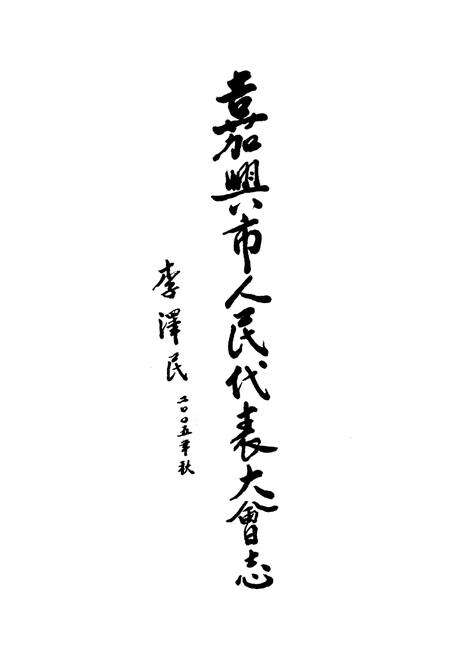 嘉興市人民代表大會志
李澤民 二〇〇五年秋